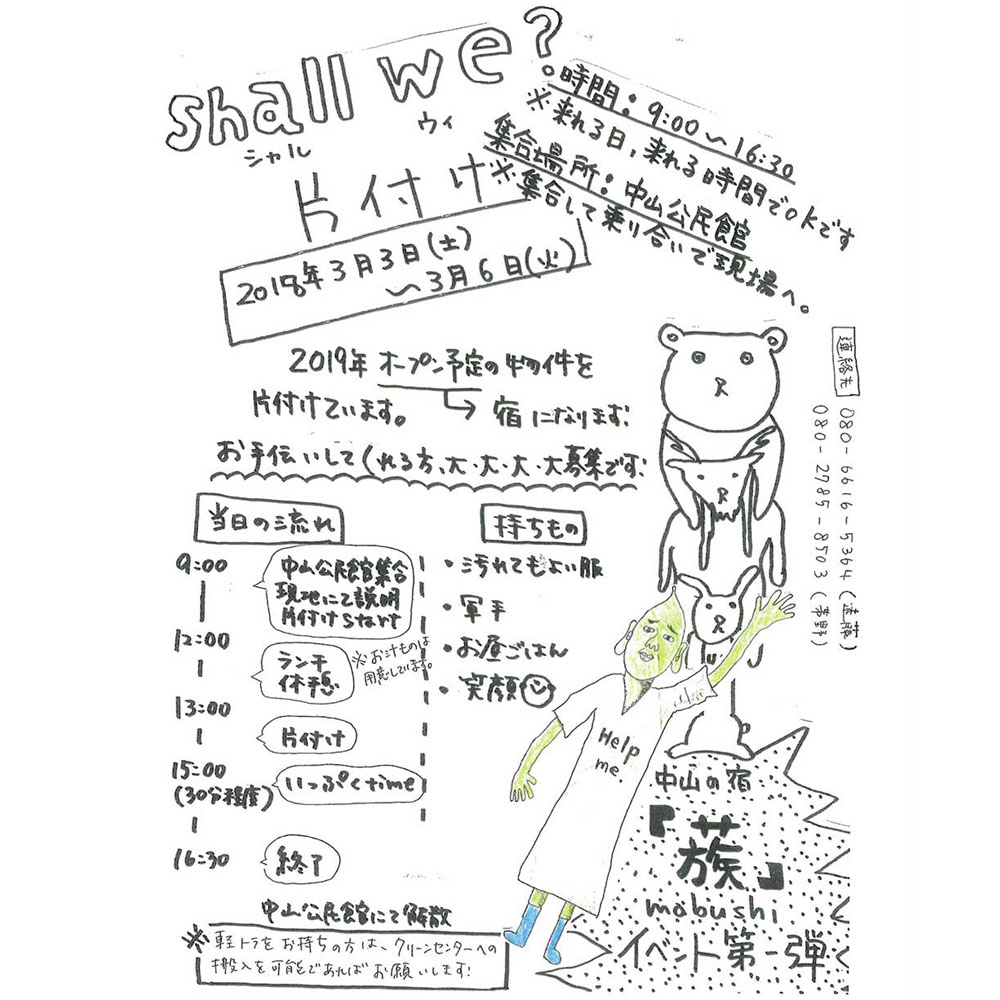 shall we?
シャル ウィ
片付け
2018年3月3日(土)
〜3月6日(火)
時間：9:00〜16:30
※来れる日,来れる時間でOKです
集合場所：中山公民館
※集合して乗り合いで現場へ。
2019年 オープン予定の物件を
片付けています。
宿になります!
お手伝いしてくれる方、大・大・大・大募集です!
連絡先
080-6616-5364(遠藤)
080-2785-8703(茅野)
当日の流れ
9:00
中山公民館集合
現地にて説明
片付けstart
12:00
ランチ
休憩
※お汁ものは
用意しています。
13:00
片付け
15:00
(30分程度)
いっぷくtime
16:30
終了
中山公民館にて解散
※軽トラをお持ちの方は、クリーンセンターへの
搬入を可能であればお願いします!
持ちもの
・汚れてもよい服
・軍手
・お昼ごはん
・笑顔
Help
me
中山の宿
『蔟』
mabushi
イベント第一弾